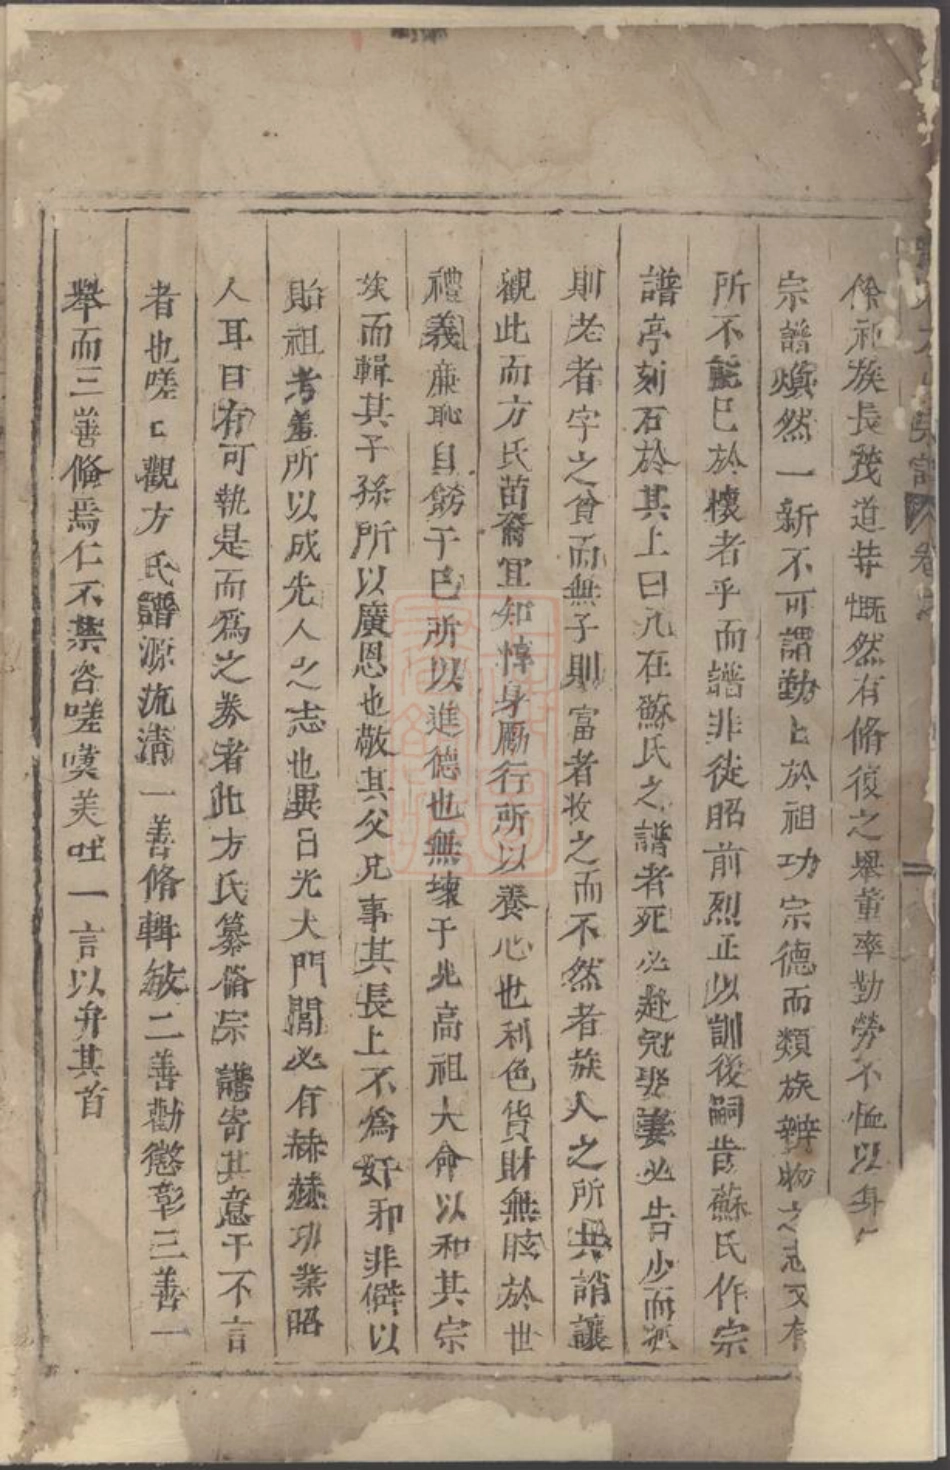 族長茂道井慨然有脩復之舉董率勤勞不恤以身
宗譜煥然一新不可謂勤匕於祖功宗德而類族辨物之志又有
所不能已於懷者乎而譜非徒昭前烈正以訓後嗣昔蘇氏作宗
譜亭刻石於其上曰凡在蘇氏之譜者死必赴冠娶妻必告少而孤
則老者字之貧而無子則富者收之而不然者族人之所共誚讓
觀此而方氏苗裔宜知惇身勵行所以養心也利色貨財無眩於世
禮義廉恥自飭于己所以進德也無壞于我高祖大命以和其宗
族而輯其子孫所以廣恩也敬其父兄事其長上不為奸邪非僻以
貽祖考羞所以成先人之志也異日光大門閭必有赫赫功業昭
人耳目有可執是而為之券者此方氏纂脩宗譜寄其意于不言
者也嗟匕觀方氏譜源流清一善脩輯敏二善勸懲彰三善一
舉而三善脩焉仁不禁咨嗟嘆美吐一言以弁其首